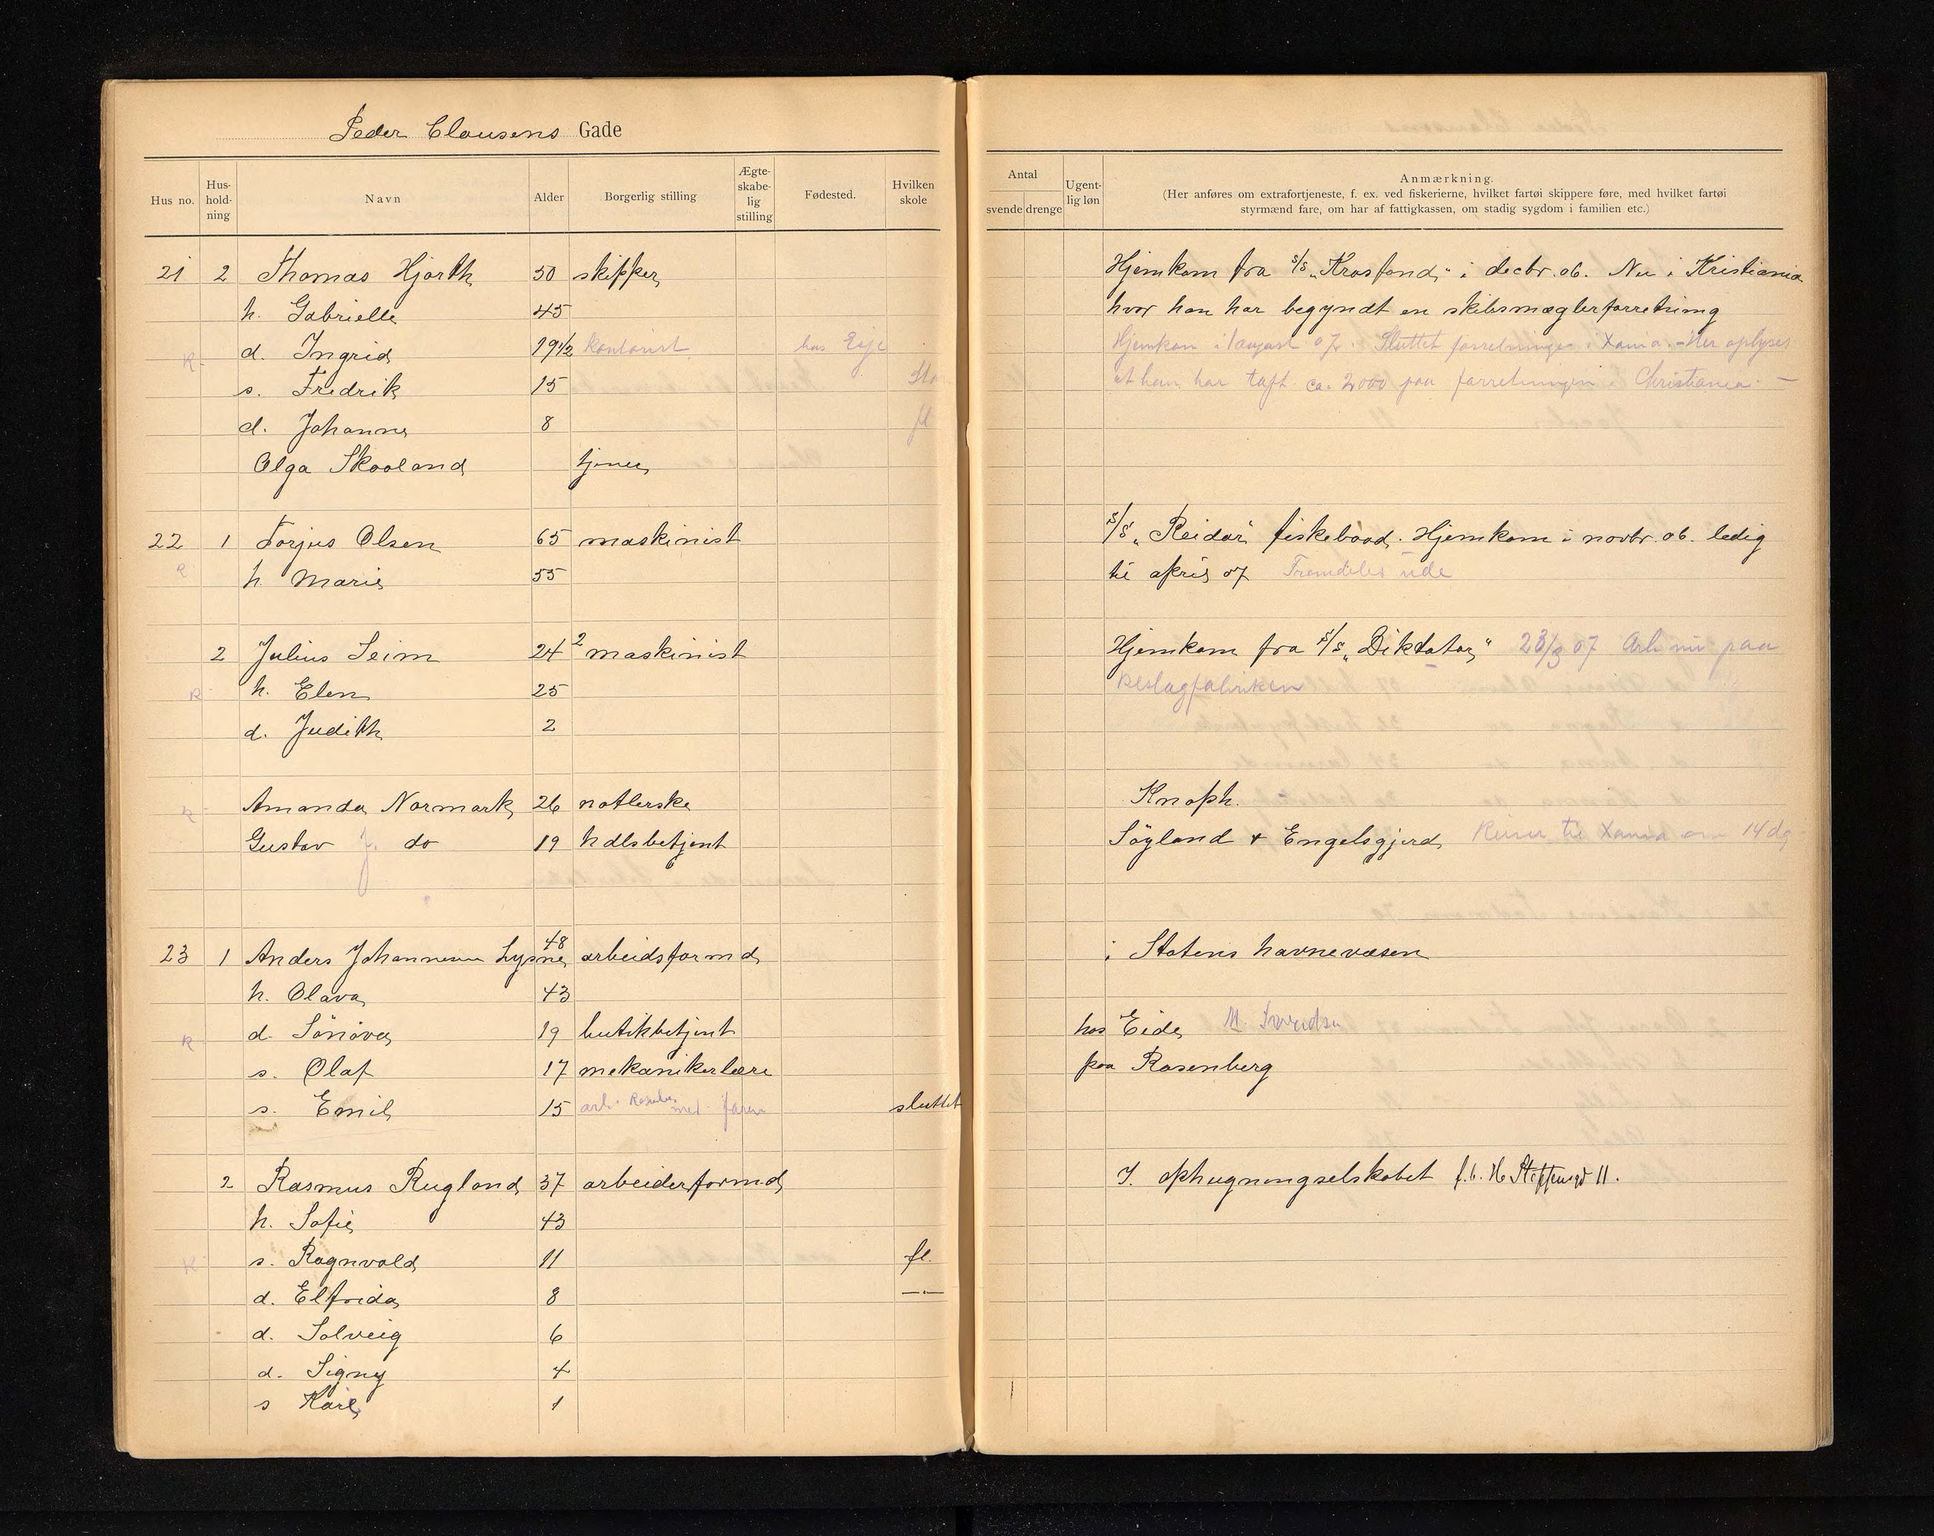 Peder Clausens Gade
Hus no. Hus-hold-ning Navn Alder Borgerlig stilling Ægte-skabe-lig stilling Fødested. Hvilken skole
Antal svende drenge Ugent-lig løn Anmærkning.
(Her anføres om extrafortjeneste, f. ex. ved fiskerierne, hvilket fartøi skippere føre, med hvilket fartøi
styrmænd fare, om har af fattigkassen, om stadig sygdom i familien etc.)
21 2 Thomas Hjorth 50 skipper Hjemkom fra s/s „Krosfond” i decbr. 06. Nu i Kristiania
h. Gabrielle 45 hvor han har begyndt en skibsmæglerforretning
R d. Ingrid 19 1/2 kontorist. hos Hjemkom i august 07. Sluttet forretningen i Xania. – Her oplyses
s. Fredrik 15 at han har tapt ca. 2000 paa forretningen i Christiania. –
d. Johanne 8 fl
Olga Skaaland tjener
22 1 Torjus Olsen 65 maskinist s/s „Reidar” fiskebaad. Hjemkom i novbr. 06. ledig
R h. Marie 55 til april 07 Fremdeles ude
2 Julius Seim 24 2 maskinist Hjemkom fra s/s „Diktator” 23/3 07 Arb nu paa
R h. Elen 25 Beslagfabriken
d. Judith 2
R Amanda Normark 26 notlerske Knoph.
Gustav J. do 19 hdlsbetjent Söyland & Engelsgjerd, Reiser til Xania om 14 dg
23 1 Anders Johannesen Lysne 48 arbeidsformd i Statens havnevæsen
h. Olava 43
R d. Sönöva 19 butikbetjent hos Eide M. Svendsen
s. Olaf 17 mekanikerlære paa Rosenberg
s. Emil 15 arb. Rosenberg med faren sluttet
2 Rasmus Rugland 37 arbeiderformd I. ophugningselskabet f.b. H Steffensgd 11.
h. Sofie 43
R s. Ragnvald 11 fl.
d. Elfrida 8 —„—
d. Solveig 6
d. Signy 4
s Kåre 1